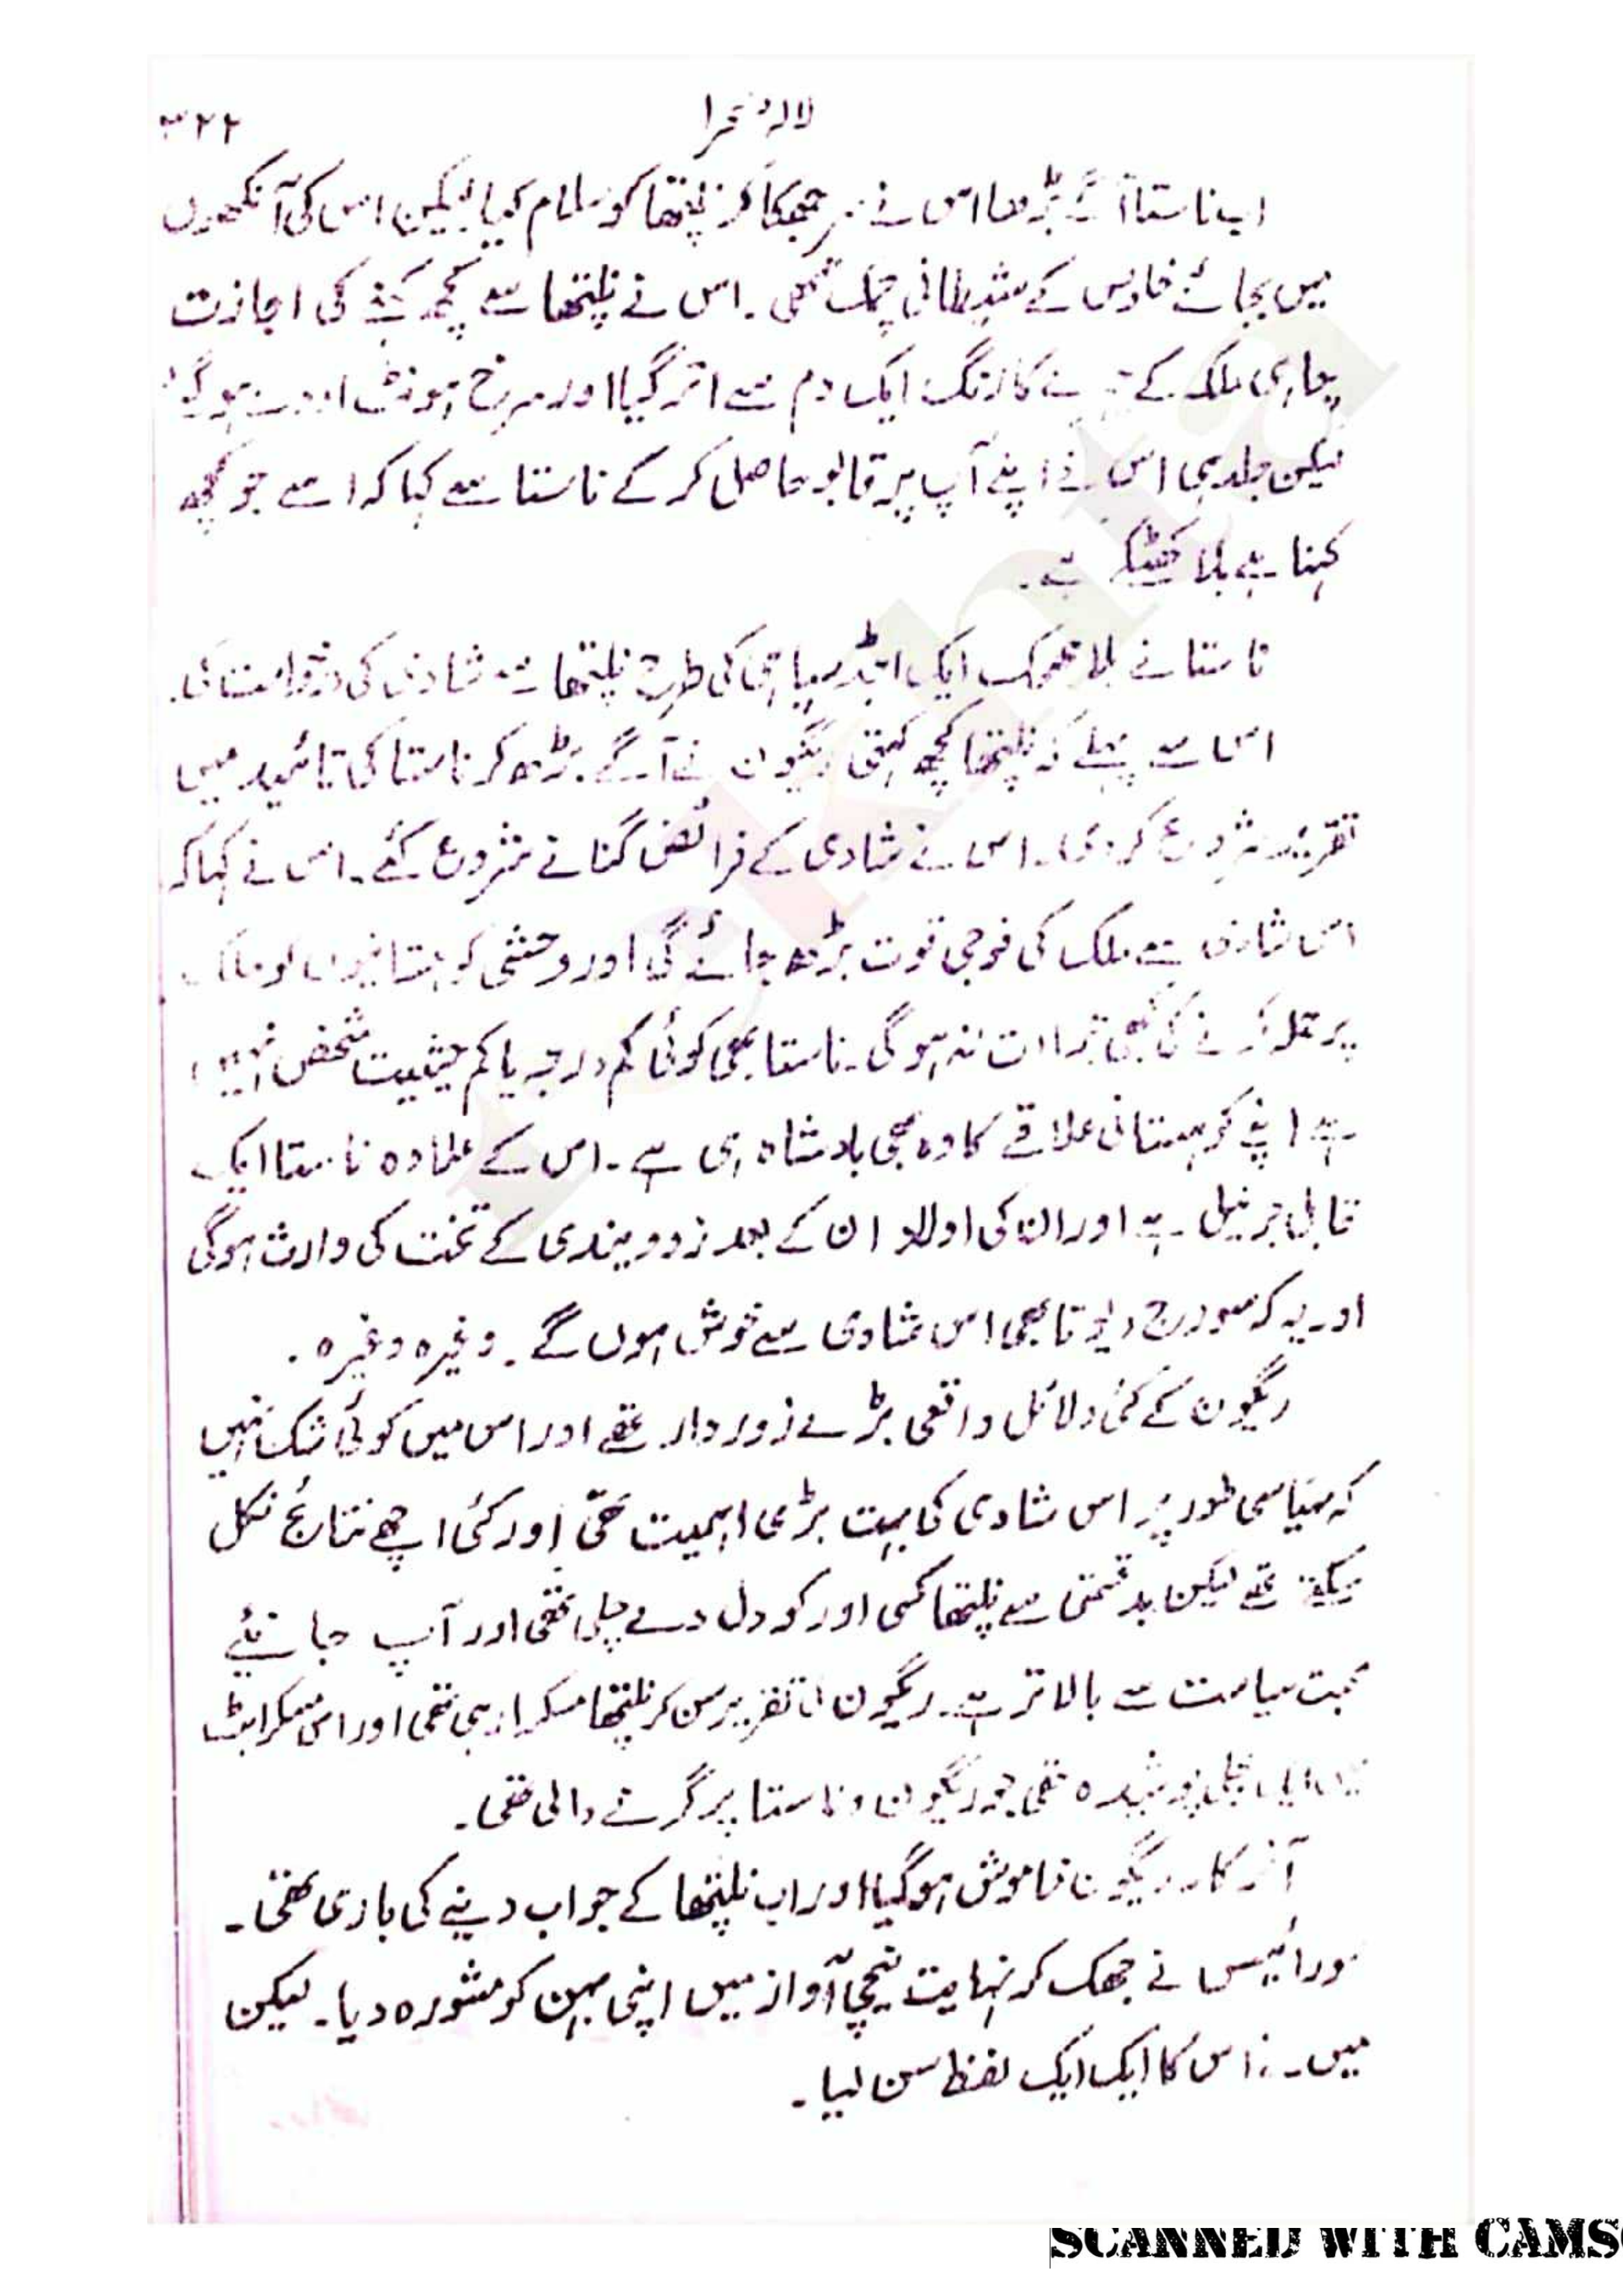 لالۂ صحرا
۳۲۲
اب ناستا آگے بڑھا اس نے سر جھکا کر نلپتھا کو سلام کیا لیکن اس کی آنکھوں
میں بجائے خلوص کے شیطانی چمک تھی ۔ اس نے نلپتھا سے کچھ کہنے کی اجازت
چاہی ملکہ کے چہرے کا رنگ ایک دم سے اتر گیا اور سرخ ہونٹ اودے ہو گئے
لیکن جلد ہی اس نے اپنے آپ پر قابو حاصل کر کے ناستا سے کہا کہ اسے جو کچھ
کہنا ہے بلا کھٹکے کہے ۔
ناستا نے بلا جھجک ایک اجڈ سپاہی کی طرح نلپتھا سے شادی کی درخواست کی ۔
اس سے پہلے کہ نلپتھا کچھ کہتی ریگون نے آگے بڑھ کر ناستا کی تائید میں
تقریر شروع کر دی ۔ اس نے شادی کے فرائض گنانے شروع کئے ۔ اس نے کہا کہ
اس شادی سے ملک کی فوجی قوت بڑھ جائے گی اور وحشی کوہستانیوں کو ملک
پر حملہ کرنے کی بھی جراات نہ ہو گی ۔ ناستا بھی کوئی کم درجہ یا کم حیثیت شخص نہیں
ہے اپنے کوہستانی علاقے کا وہ بھی بادشاہ ہی ہے ۔ اس کے علاوہ ناستا ایک
قابل جرنیل ہے اور ان کی اولاد ان کے بعد زوویندی کے تخت کی وارث ہوگی
اور یہ کہ سورج دیوتا بھی اس شادی سے خوش ہوں گے ۔ وغیرہ وغیرہ ۔
ریگون کے کئی دلائل واقعی بڑے زور دار تھے اور اس میں کوئی شک نہیں
کہ سیاسی طور پر اس شادی کی بہت بڑی اہمیت تھی اور کئی اچھے نتائج نکل
سکتے تھے لیکن بدقسمتی سے نلپتھا کسی اور کو دل دے چلی تھی اور آپ جانیئے
محبت سیاست سے بالاتر ہے ۔ ریگون کی تقریر سن کر نلپتھا مسکرا رہی تھی اور اس مسکراہٹ
میں ایسی بجلی پوشیدہ تھی جو ریگون و ناستا پر گرنے والی تھی ۔
آخر کار ریگون خاموش ہو گیا اور اب نلپتھا کے جواب دینے کی باری تھی ۔
سورائیس نے جھک کر نہایت نیچی آواز میں اپنی بہن کو مشورہ دیا ۔ لیکن
میں نے اس کا ایک ایک لفظ سن لیا ۔
SCANNED WITH CAMS